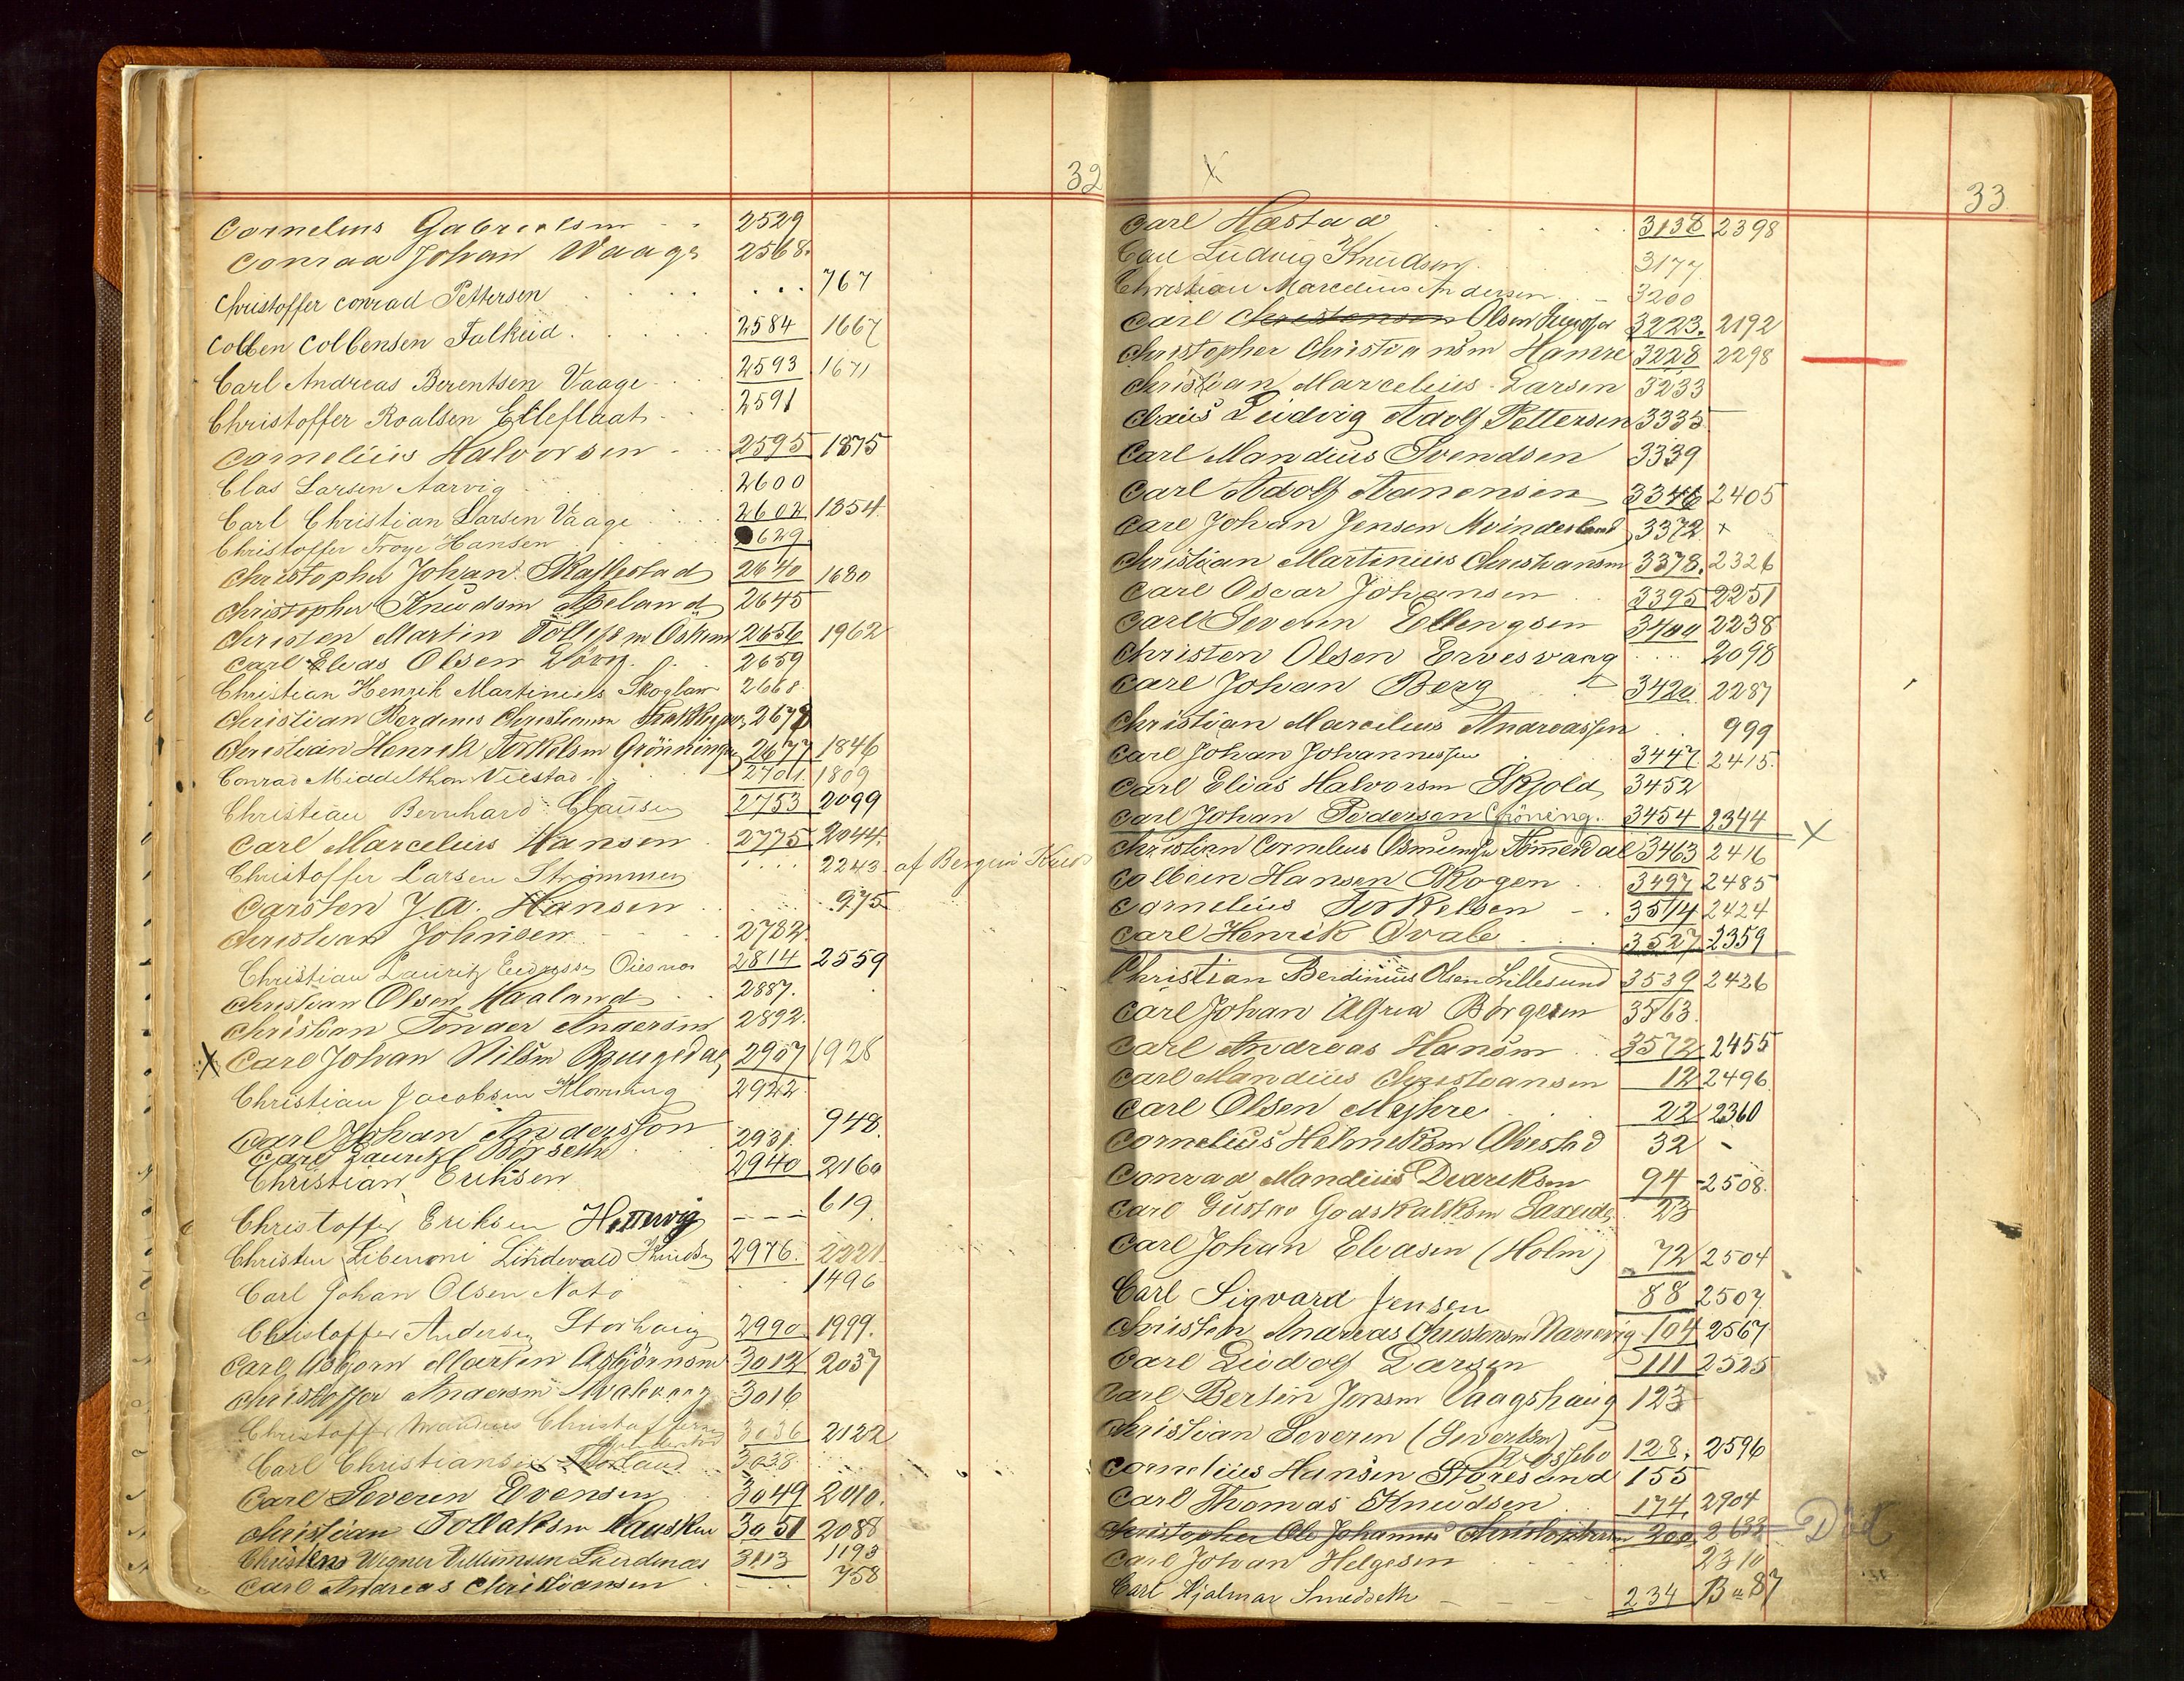 32
Cornelius Gabrielsen 2529
Conrad Johan Vaage 2568.
Christoffer Conrad Pettersen 767
Colben Colbensen Falkeid 2584 1667
Carl Andreas Berentsen Vaage 2593 1671
Christoffer Roalsen Etteflaat 2591
Cornelius Halvorsen 2595 1875
Clas Larsen Aarvig 2600
Carl Christian Larsen Vaage 2602 1354
Christoffer Troye Hansen 629
Christopher Johan Skallestad 2640 1680
Christopher Knudsen Apeland 2645
Christen Martin Tollefsen 2656 1962
Carl Elias Olsen 2659
Christian Henrik Martinius 2668
Christian Berdines Christiansen 267
Christian Henrik Torkelsen Grönningen 2677 1846
Conrad Middelthon Viestad 2701 1809
Christian Bernhard Clausen 2753 2099
Carl Marcelius Hansen 2775 2044.
Christoffer Larsen Strömmen 2243 af Bergen
Carsten J. A. Hansen 975
Christian Johnsen 2782
Christian Lauritz 2814 2559
Christian Olsen Haaland 2887.
Christian Tönder Andersen 2892.
X Carl Johan Nilsen 2907 1928
Christian Jacobsen 2922
Carl Johan Andersson 948
Carl Lauritz 2931.
Christian Eriksen 2940 2160
Christoffer Eriksen 619
Christen Libenoni Lindevald Knudsen 2976. 2221
Carl Johan Olsen Notö 1496
Christoffer Andersen Storhaug 2990 1999.
Carl Asbjorn Martin Asbjörnsen 3012 2037
Christoffer Andersen 3016
Christoffer Mandius Christoffersen 3036 2122
Carl Christiansen 3038
Carl Severin Evensen 3049 2010.
Christian Tollaksen 3051 2088
Christen Wegner 3113 1193
Carl Andreas Christiansen 758
X
33
Carl Hæstad 3138 2398
Carl Ludvig Knudsen 3177
Christian Marcelius Andersen 3200
Carl Christensen Olsen 3223. 2192
Christopher Christiansen Hamre 3228 2298
Christian Marcelius Larsen 3233
Claus Ludvig Adolf Pettersen 3335
Carl Mandius Svendsen 3339
Carl Adolf Aanensen 3346 2405
Carl Johan Jensen 3372 x
Christian Martinius Christiansen 3378. 2326
Carl Oscar Johansen 3395 2251
Carl Severin Ellengsen 3400 2238
Christen Olsen Ervesvaag 2098
Carl Johan Berg 3420 2287
Christian Marcelius Andreassen 999
Carl Johan Johannessen 3447 2415.
Carl Elias Halvorsen Skjold 3452
Carl Johan Pedersen Gröning. 3454 2344 X
Christian Cornelius Osmundsen Tömmerdal 3463 2416
Colbein Hansen Skogen 3497 2485
Cornelius Torkelsen 3514 2424
Carl Henrik Qvale 3527 2359
Christian Berdinius Olsen Lillesund 3539 2426
Carl Johan Börgesen 3563.
Carl Andreas Hansen 3572 2455
Carl Mandius Christiansen 12 2496
Carl Olsen Myhre 22 2360
Cornelius Helmeksen 32 -
Conrad Mandius Didriksen 94 2508.
Carl Gustav Godskalksen 23
Carl Johan Eliasen (Holm) 72 2504
Carl Sigvard Jensen 88 2507
Christen Andreas Christensen 104 2567
Carl Ludolf Larsen 111 2525
Carl Bertin Jensen Vaagshaug 123
Christian Severin (Sivertsen) 128. 2596
Cornelius Hansen Storesund 155
Carl Thomas Knudsen 174. 2904
Christopher Ole Johannes Christophersen 200 2633 Död
Carl Johan Helgesen 2310
Carl Hjalmar Smedseth 234 B 87